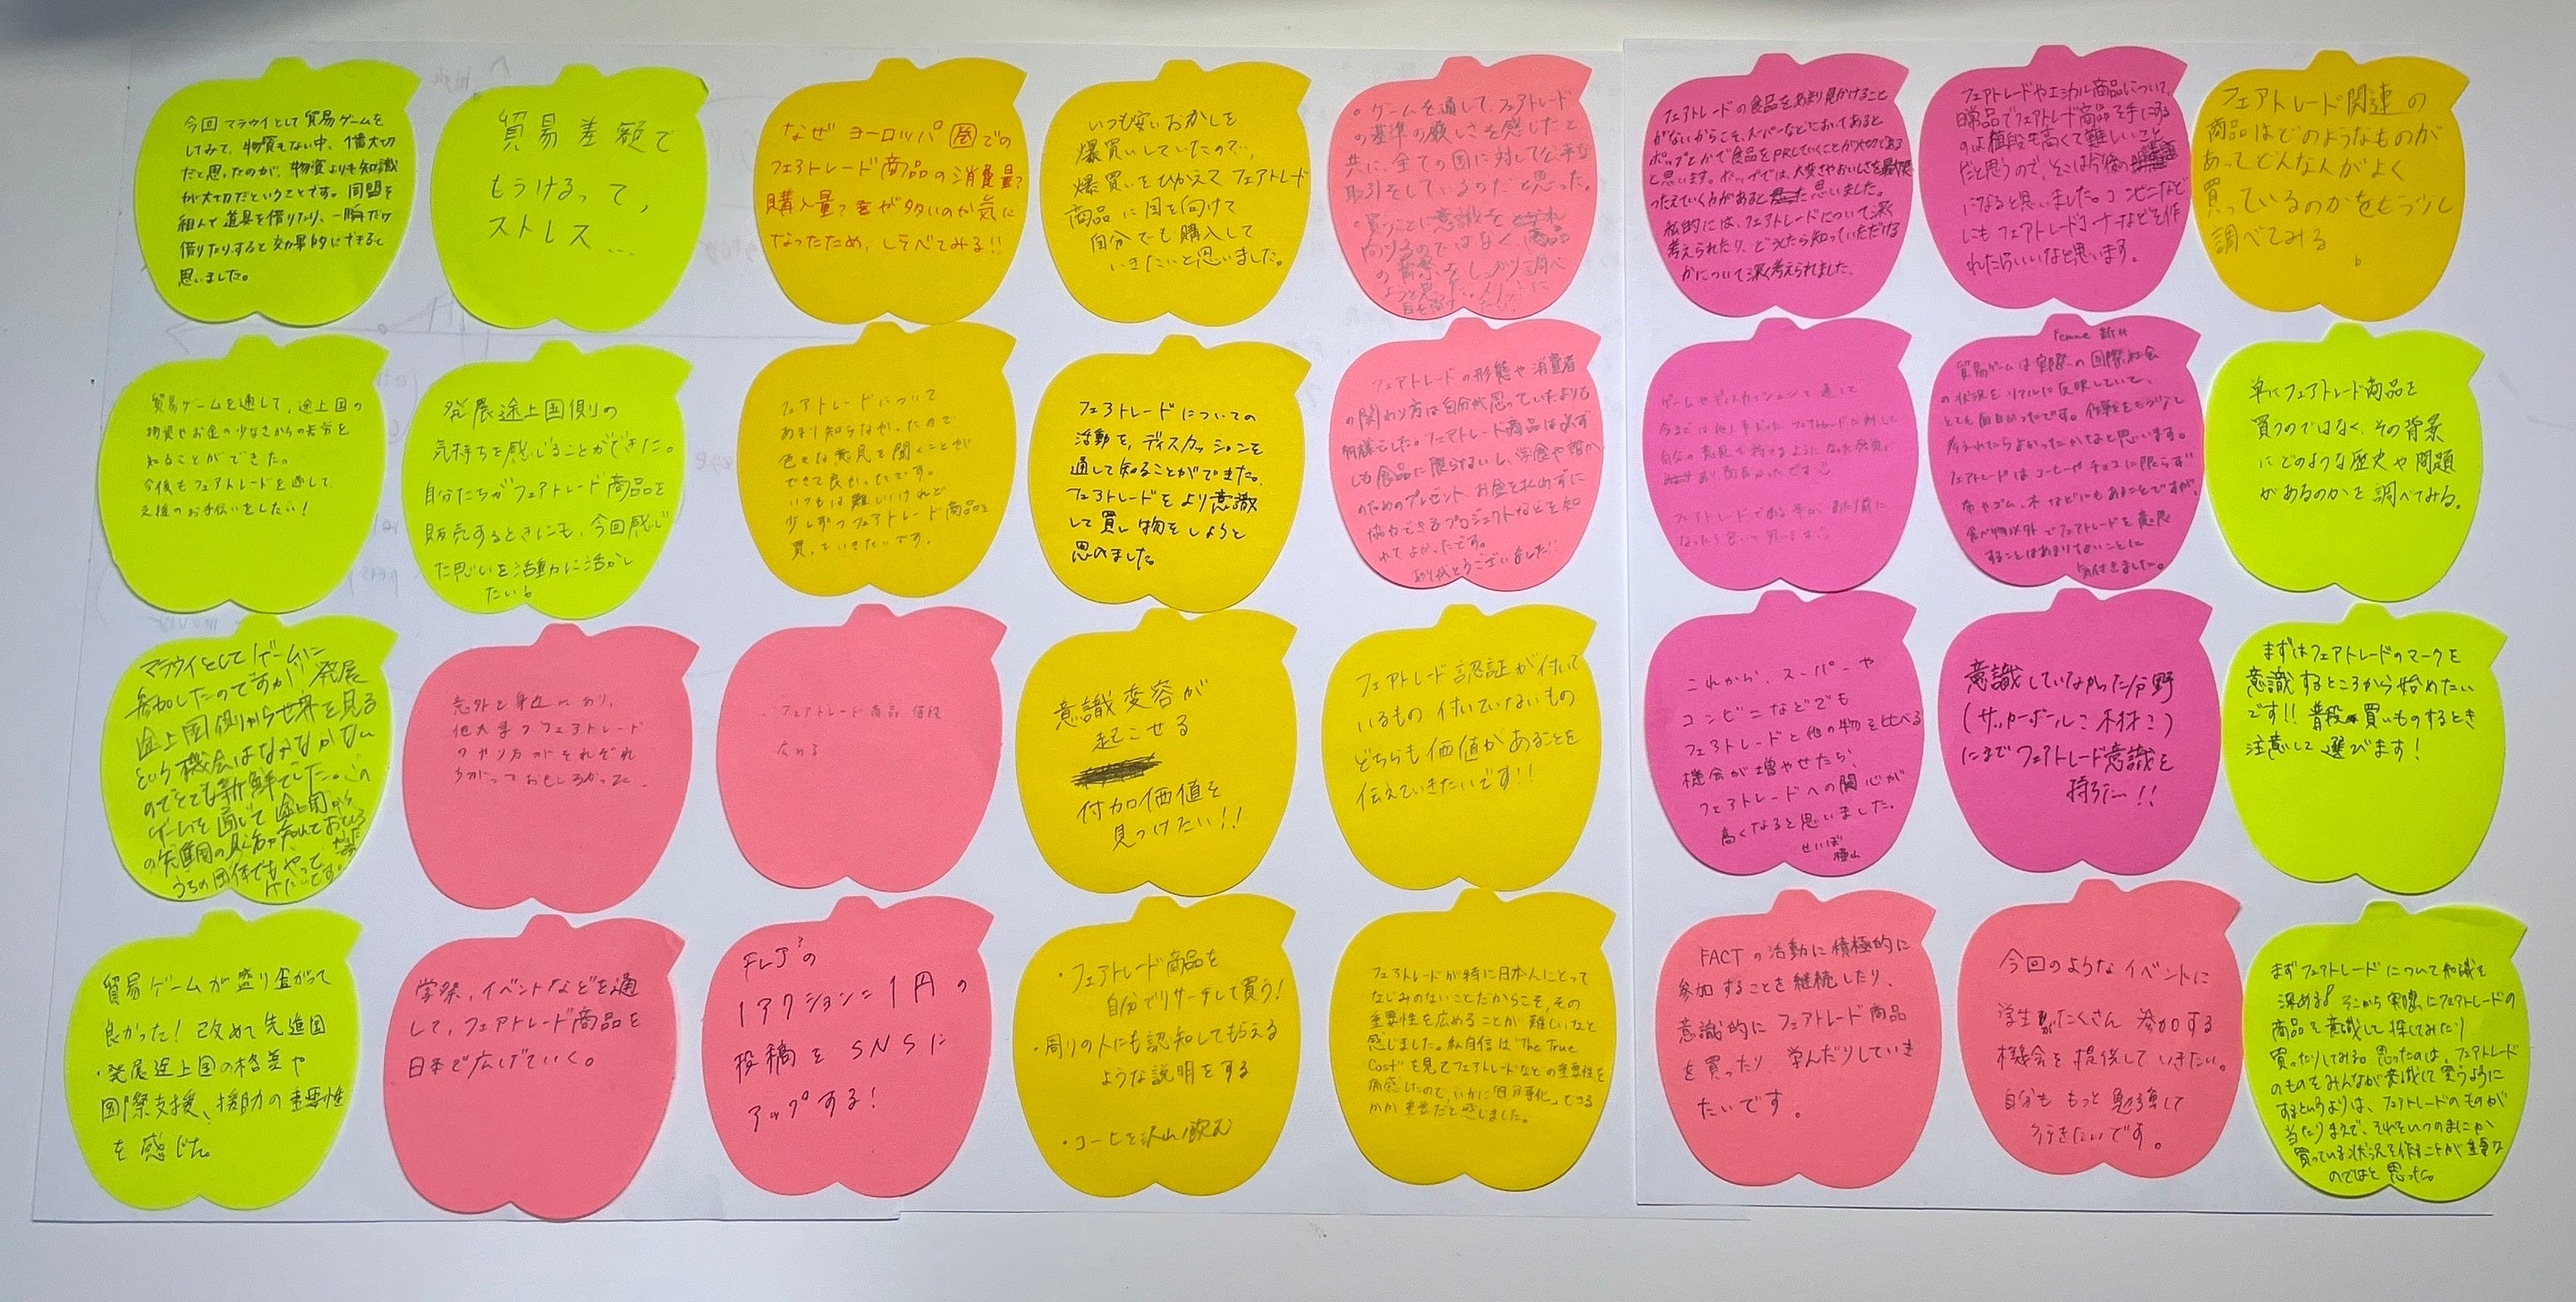 今回マラウイとして貿易ゲームを
してみて、物資もない中、借大切
だと思ったのが、物資よりも知識
が大切だということです。同盟を
組んで道具を借りたり、一瞬だけ
借りたりすると効果的にできると
思いました。
貿易差額で
もうけるって、
ストレス…
なぜ ヨーロッパ圏での
フェアトレード商品の消費量?
購入量?が多いのか気に
なったため、しらべてみる!!
いつも安いおかしを
爆買いしていたので、
爆買いをひかえて フェアトレード
商品に目を向けて
自分でも購入して
いきたいと思いました。
。ゲームを通して、フェアトレード
の基準の厳しさを感じたと
共に、全ての国に対して公平な
取引をしているのだと思った。
・買うことに意識を
向けるのではなく、商品
の背景をしっかり調べ
フェアトレードの食品をあまり見かけること
がないからこそ、スーパーなどにおいてあると
ポップとかで食品をPRしていくことが大切である
と思います。ポップでは、大変さやおいしさを最大限
つたえていく方があると思いました。
私的には、フェアトレードについて深く
考えられたり、どうしたら知っていただける
かについて深く考えられました。
フェアトレードやエシカル商品について、
日常品でフェアトレード商品を手にとる
のは値段も高くて難しいこと
だと思うので、そこは今後の
になると思いました。コンビニなど
にもフェアトレードコーナーなどを作
れたらいいなと思います。
フェアトレード関連の
商品はどのようなものが
あってどんな人がよく
買っているのかをもう少し
調べてみる
貿易ゲームを通して、途上国の
物資やお金の少なさからの苦労を
知ることができた。
今後もフェアトレードを通して、
支援のお手伝いをしたい!
発展途上国側の
気持ちを感じることができた。
自分たちがフェアトレード商品を
販売するときにも、今回感じ
た思いを活動に活かし
たい。
フェアトレードについて
あまり知らなかったので
色々な意見を聞くことが
できて良かったです。
いつもは難しいけれど
少しずつフェアトレード商品を
買っていきたいです。
フェアトレードについての
活動を、ディスカッションを
通して知ることができた。
フェアトレードをより意識
して買い物をしようと
思いました。
フェアトレードの形態や消費者
の関わり方は自分が思っていたよりも
多様でした。フェアトレード商品は必ず
しも食品に限らないし、学食や誰か
のためのプレゼント、お金を払わずに
協力できるプロジェクトなどを知
れてよかったです。
ありがとうございました!!
ゲームやディスカッションを通して
今までは他人事だったフェアトレードに対して
自分の意見を持てるようになった
フェアトレードである事が あたり前に
なったら良いと思います
Femme 新村
貿易ゲームは実際の国際社会
の状況をリアルに反映していて、
とても面白かったです。作戦をもう少し
考えれたらよかったかなと思います。
フェアトレードはコーヒーやチョコに限らず
布やゴム、木などにもあることですが、
食べ物以外でフェアトレードを意識
することはあまりないことに
気付きました。
単にフェアトレード商品を
買うのではなく、その背景
にどのような歴史や問題
があるのかを調べてみる。
マラウイとしてゲームに
参加したのですが、発展
途上国側から世界を見る
という機会はなかなかない
のでとても新鮮でした。この
ゲームを通じて途上国から
の先進国の
うちの団体でもやって
みたいです。
意外と身近にあり、
他大学のフェアトレード
のやり方がそれぞれ
ちがっておもしろかった。
フェアトレード商品 値段
広める
意識変容が
起こせる
付加価値を
見つけたい!!
フェアトレード認証が付いて
いるもの 付いていないもの
どちらも価値があることを
伝えていきたいです!!
これから、スーパーや
コンビニなどでも
フェアトレードと他の物を比べる
機会が増やせたら、
フェアトレードへの関心が
高くなると思いました。
せいぼ
意識していなかった分野
(サッカーボール:木材:)
にまでフェアトレード意識を
持ちたい!!
まずはフェアトレードのマークを
意識するところから始めたい
です!! 普段買いものするとき
注意して選びます!
貿易ゲームが盛り上がって
良かった! 改めて先進国
・発展途上国の格差や
国際支援、援助の重要性
を感じた。
学祭、イベントなどを通
して、フェアトレード商品を
日本で広げていく。
FLJ?の
1アクション=1円の
投稿をSNSに
アップする!
・フェアトレード商品を
自分でリサーチして買う!
・周りの人にも認知してもらえる
ような説明をする
・コーヒーを沢山飲む
フェアトレードが特に日本人にとって
なじみのないことだからこそ、その
重要性を広めることが難しいなと
感じました。私自信は"The True
Cost"を見てフェアトレードなどの重要性を
痛感したので、いかに「自分事化」できる
かが重要だと感じました。
FACTの活動に積極的に
参加することを継続したり、
意識的にフェアトレード商品
を買ったり、学んだりしていき
たいです。
今回のようなイベントに
学生がたくさん参加する
機会を提供していきたい。
自分ももっと勉強して
行きたいです。
まずフェアトレードについて知識を
深める。そこから実際にフェアトレードの
商品を意識して探してみたり
買ったりしてみる。思ったのは、フェアトレード
のものをみんなが意識して買うように
するというよりは、フェアトレードのものが
当たりまえで、それをいつのまにか
買っている状況を作ることが重要な
のではと思った。